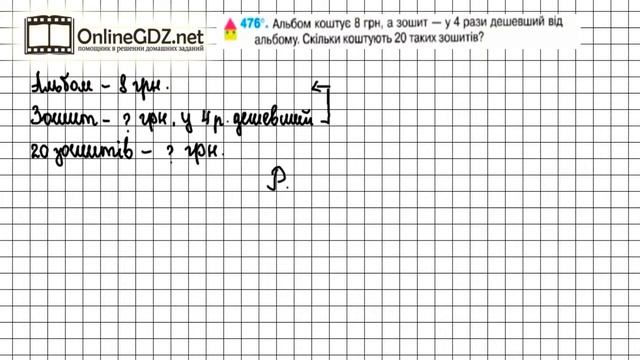 OnlineGDZ.net
помощник в решении домашних заданий
476°. Альбом коштує 8 грн, а зошит — у 4 рази дешевший від
альбому. Скільки коштують 20 таких зошитів?
Альбом – 8 грн.
Зошит – ? грн, у 4 р. дешевший
20 зошитів – ? грн.
Р.